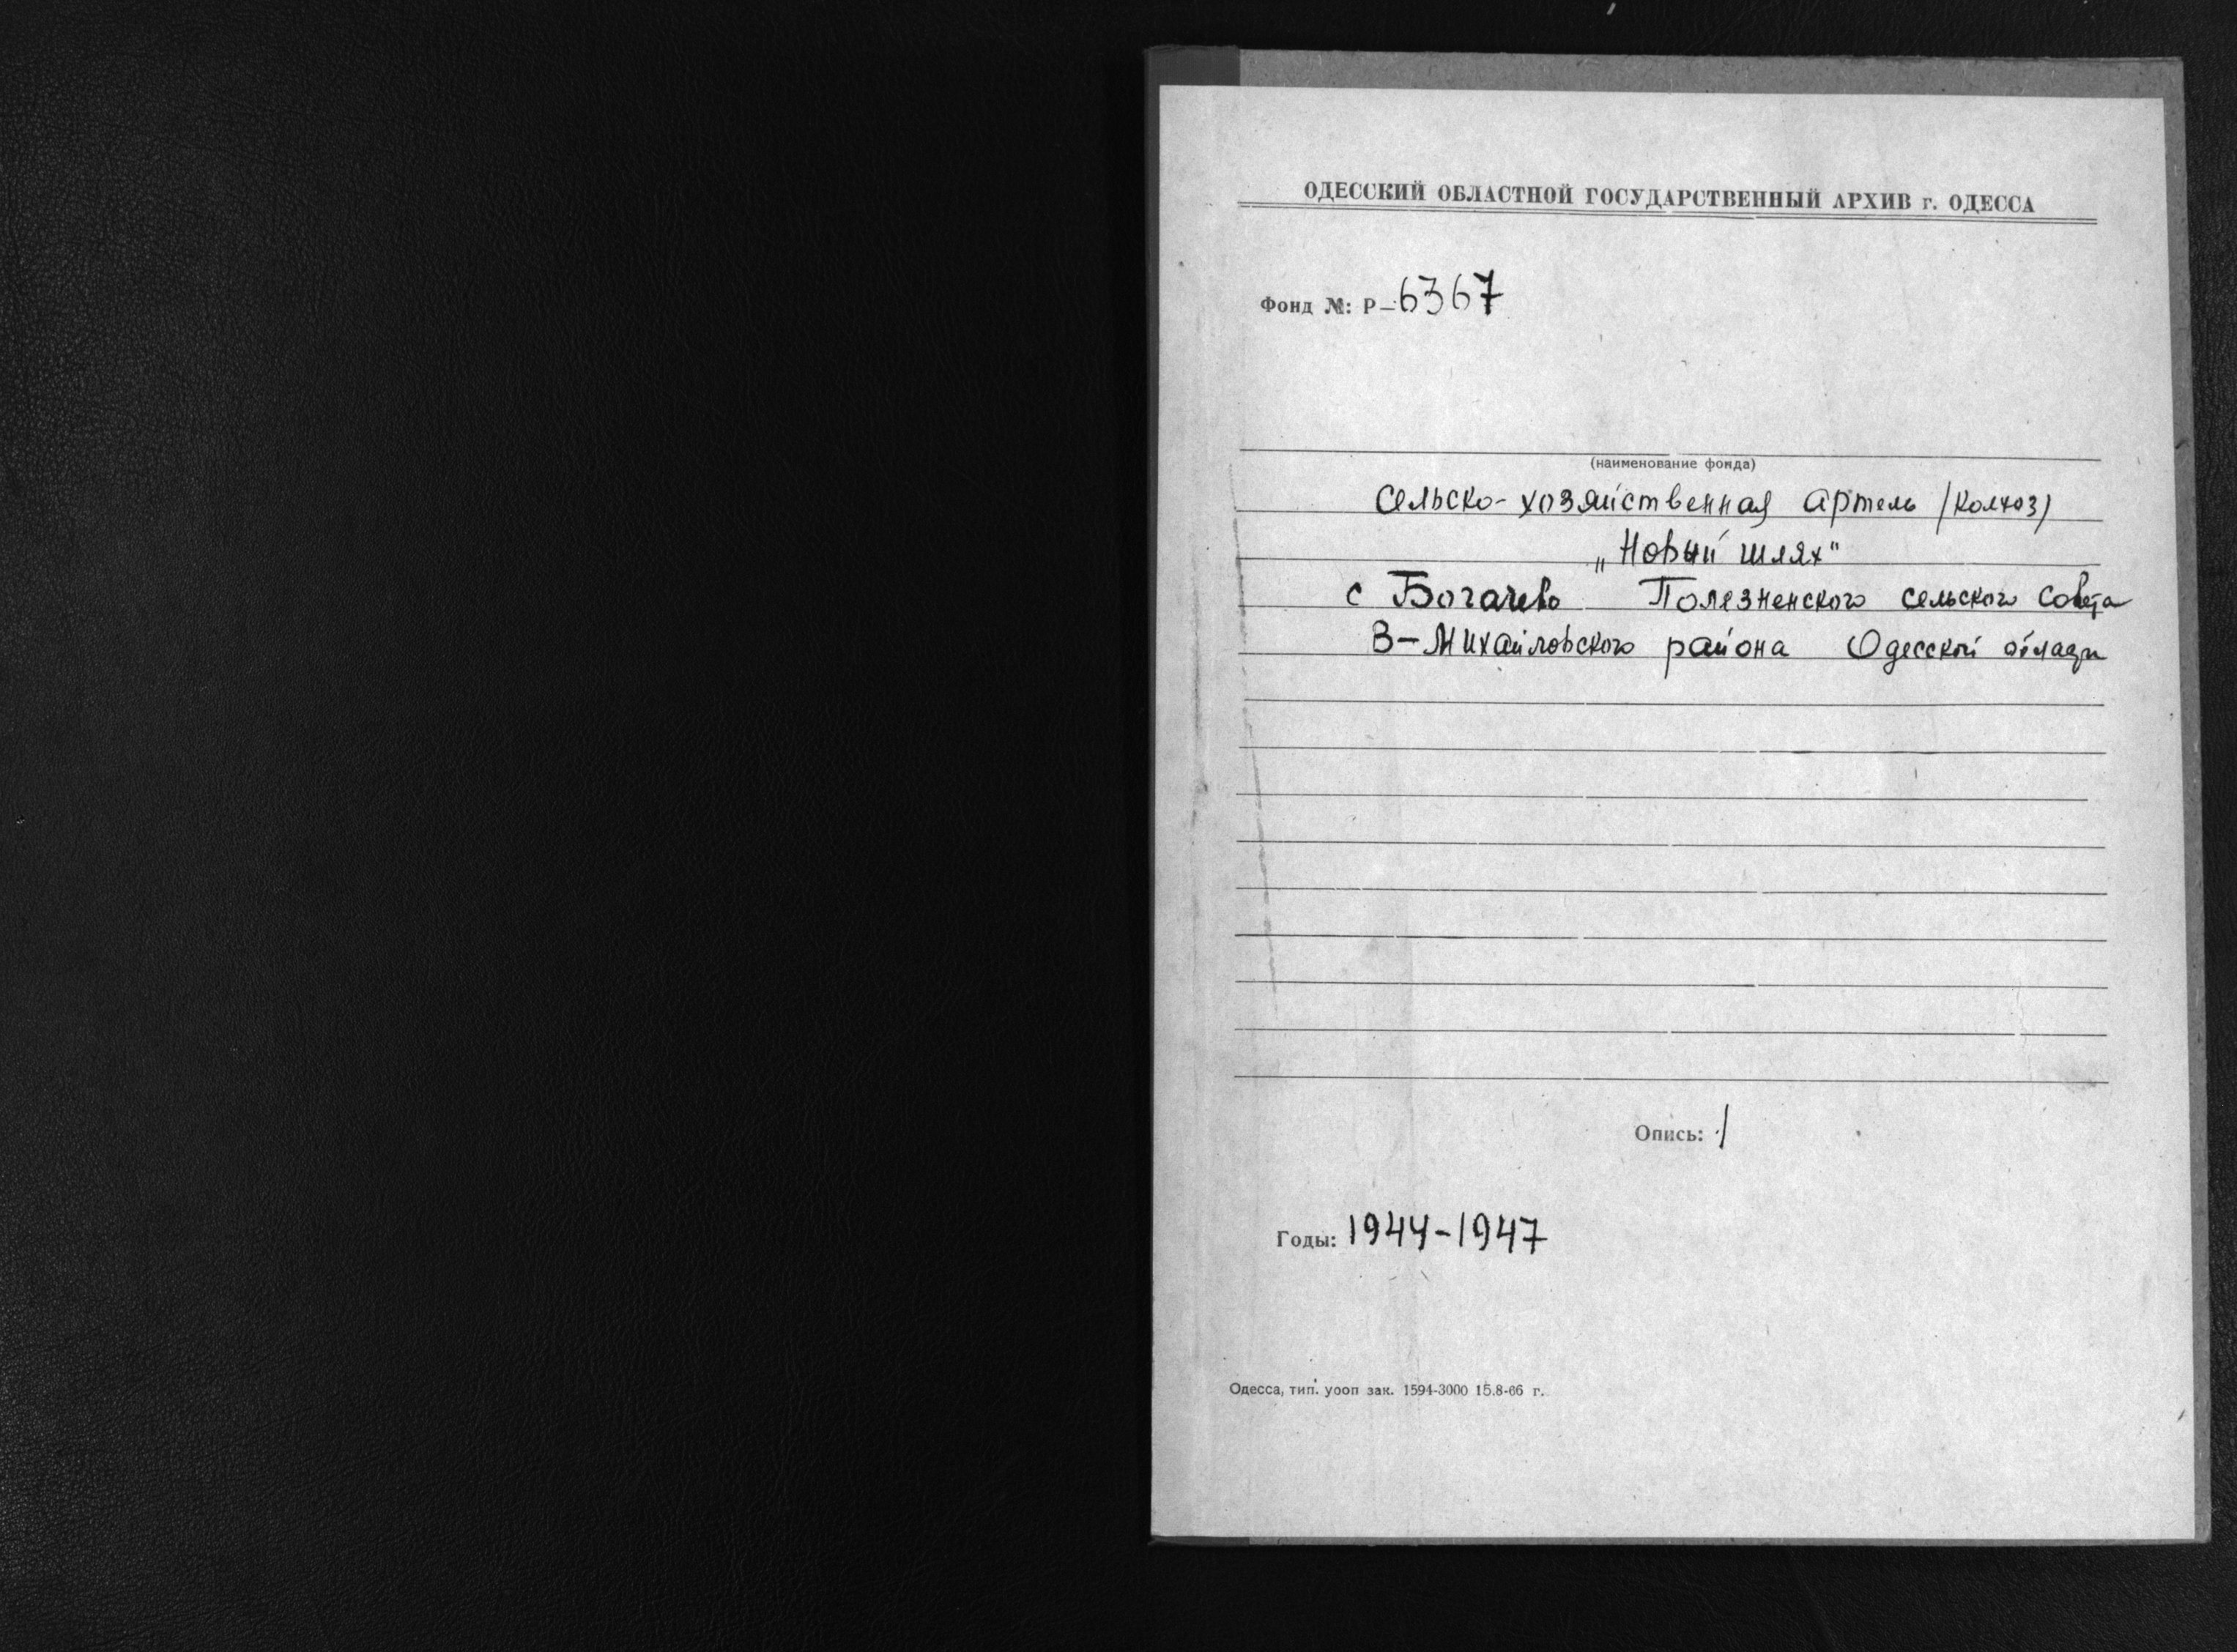 ОДЕССКИЙ ОБЛАСТНОЙ ГОСУДАРСТВЕННЫЙ АРХИВ г. ОДЕССА
Фонд №: Р-6367
(наименование фонда)
Сельско-хозяйственная Артель /колхоз/
„Новый шлях"
с Богачево Полезненского сельского совета
В-Михайловского района Одесской области
Опись: 1
Годы: 1944-1947
Одесса, тип. уооп зак. 1594-3000 15.8-66 г.